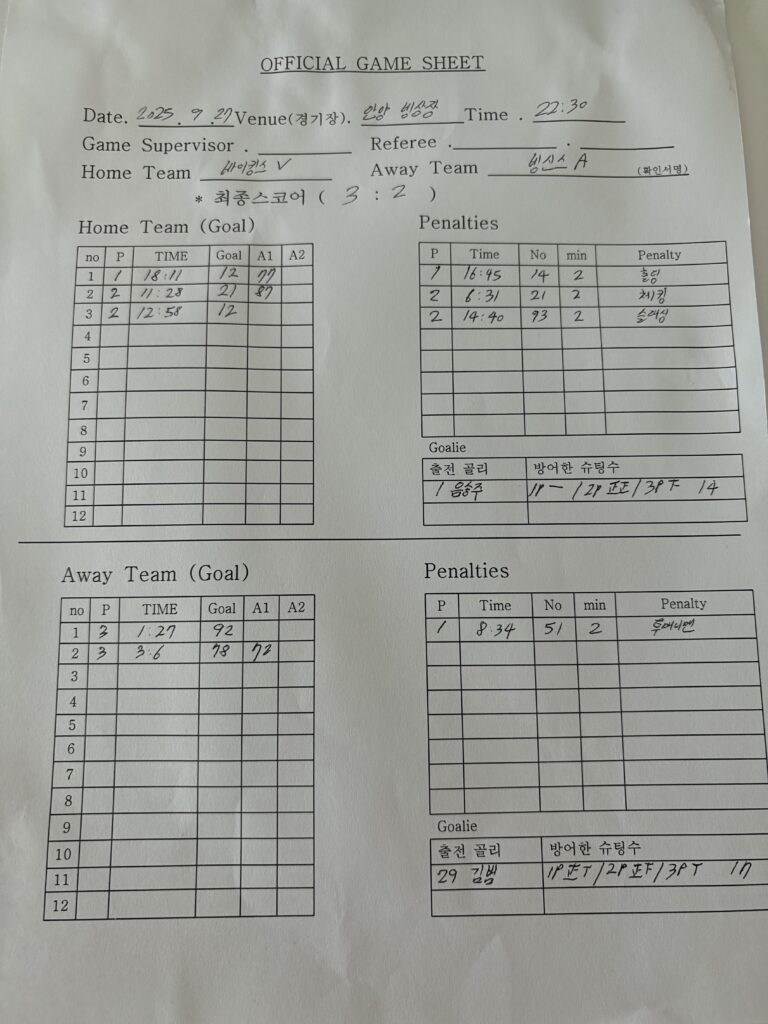 OFFICIAL GAME SHEET
Date. 2025 . 9 . 27 Venue(경기장). 안양 빙상장 Time . 22:30
Game Supervisor . Referee . .
Home Team 바이킹스 V Away Team 빙신스 A (확인서명)
* 최종스코어 ( 3 : 2 )
Home Team (Goal)
no P TIME Goal A1 A2
1 1 18:11 12 77
2 2 11:28 21 87
3 2 12:58 12
4
5
6
7
8
9
10
11
12
Penalties
P Time No min Penalty
1 16:45 14 2 홀딩
2 6:31 21 2 체킹
2 14:40 93 2 슬래싱
Goalie
출전 골리 방어한 슈팅수
1 음승주 1P 一 / 2P 正正 / 3P 下 14
Away Team (Goal)
no P TIME Goal A1 A2
1 3 1:27 92
2 3 3:6 78 72
3
4
5
6
7
8
9
10
11
12
Penalties
P Time No min Penalty
1 8:34 51 2 투매니맨
Goalie
출전 골리 방어한 슈팅수
29 김범 1P 正T / 2P 正F / 3P T 17